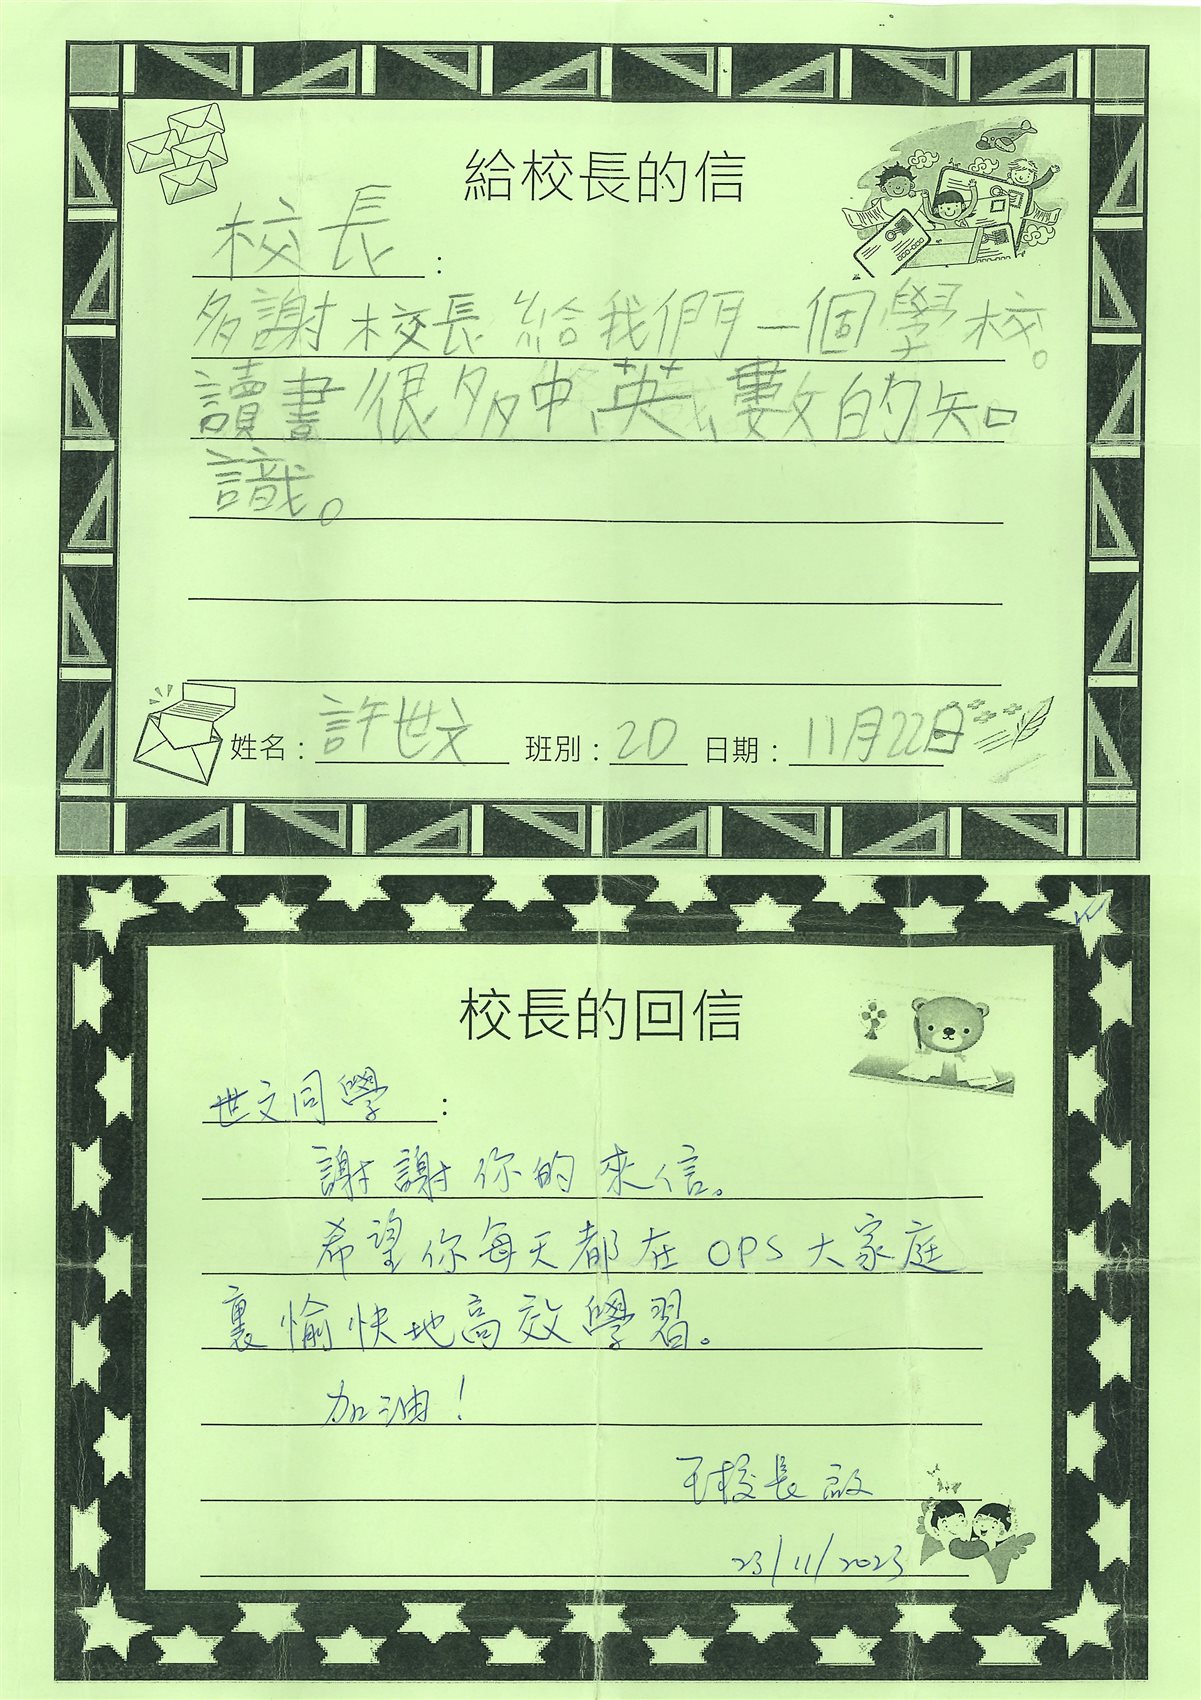 給校長的信
校長：
多謝校長給我們一個學校。
讀書很多中英數的知
識。
姓名：許世文 班別：2D 日期：11月22日
校長的回信
世文同學：
謝謝你的來信。
希望你每天都在OPS大家庭
裏愉快地高效學習。
加油！
王校長啟
23/11/2023